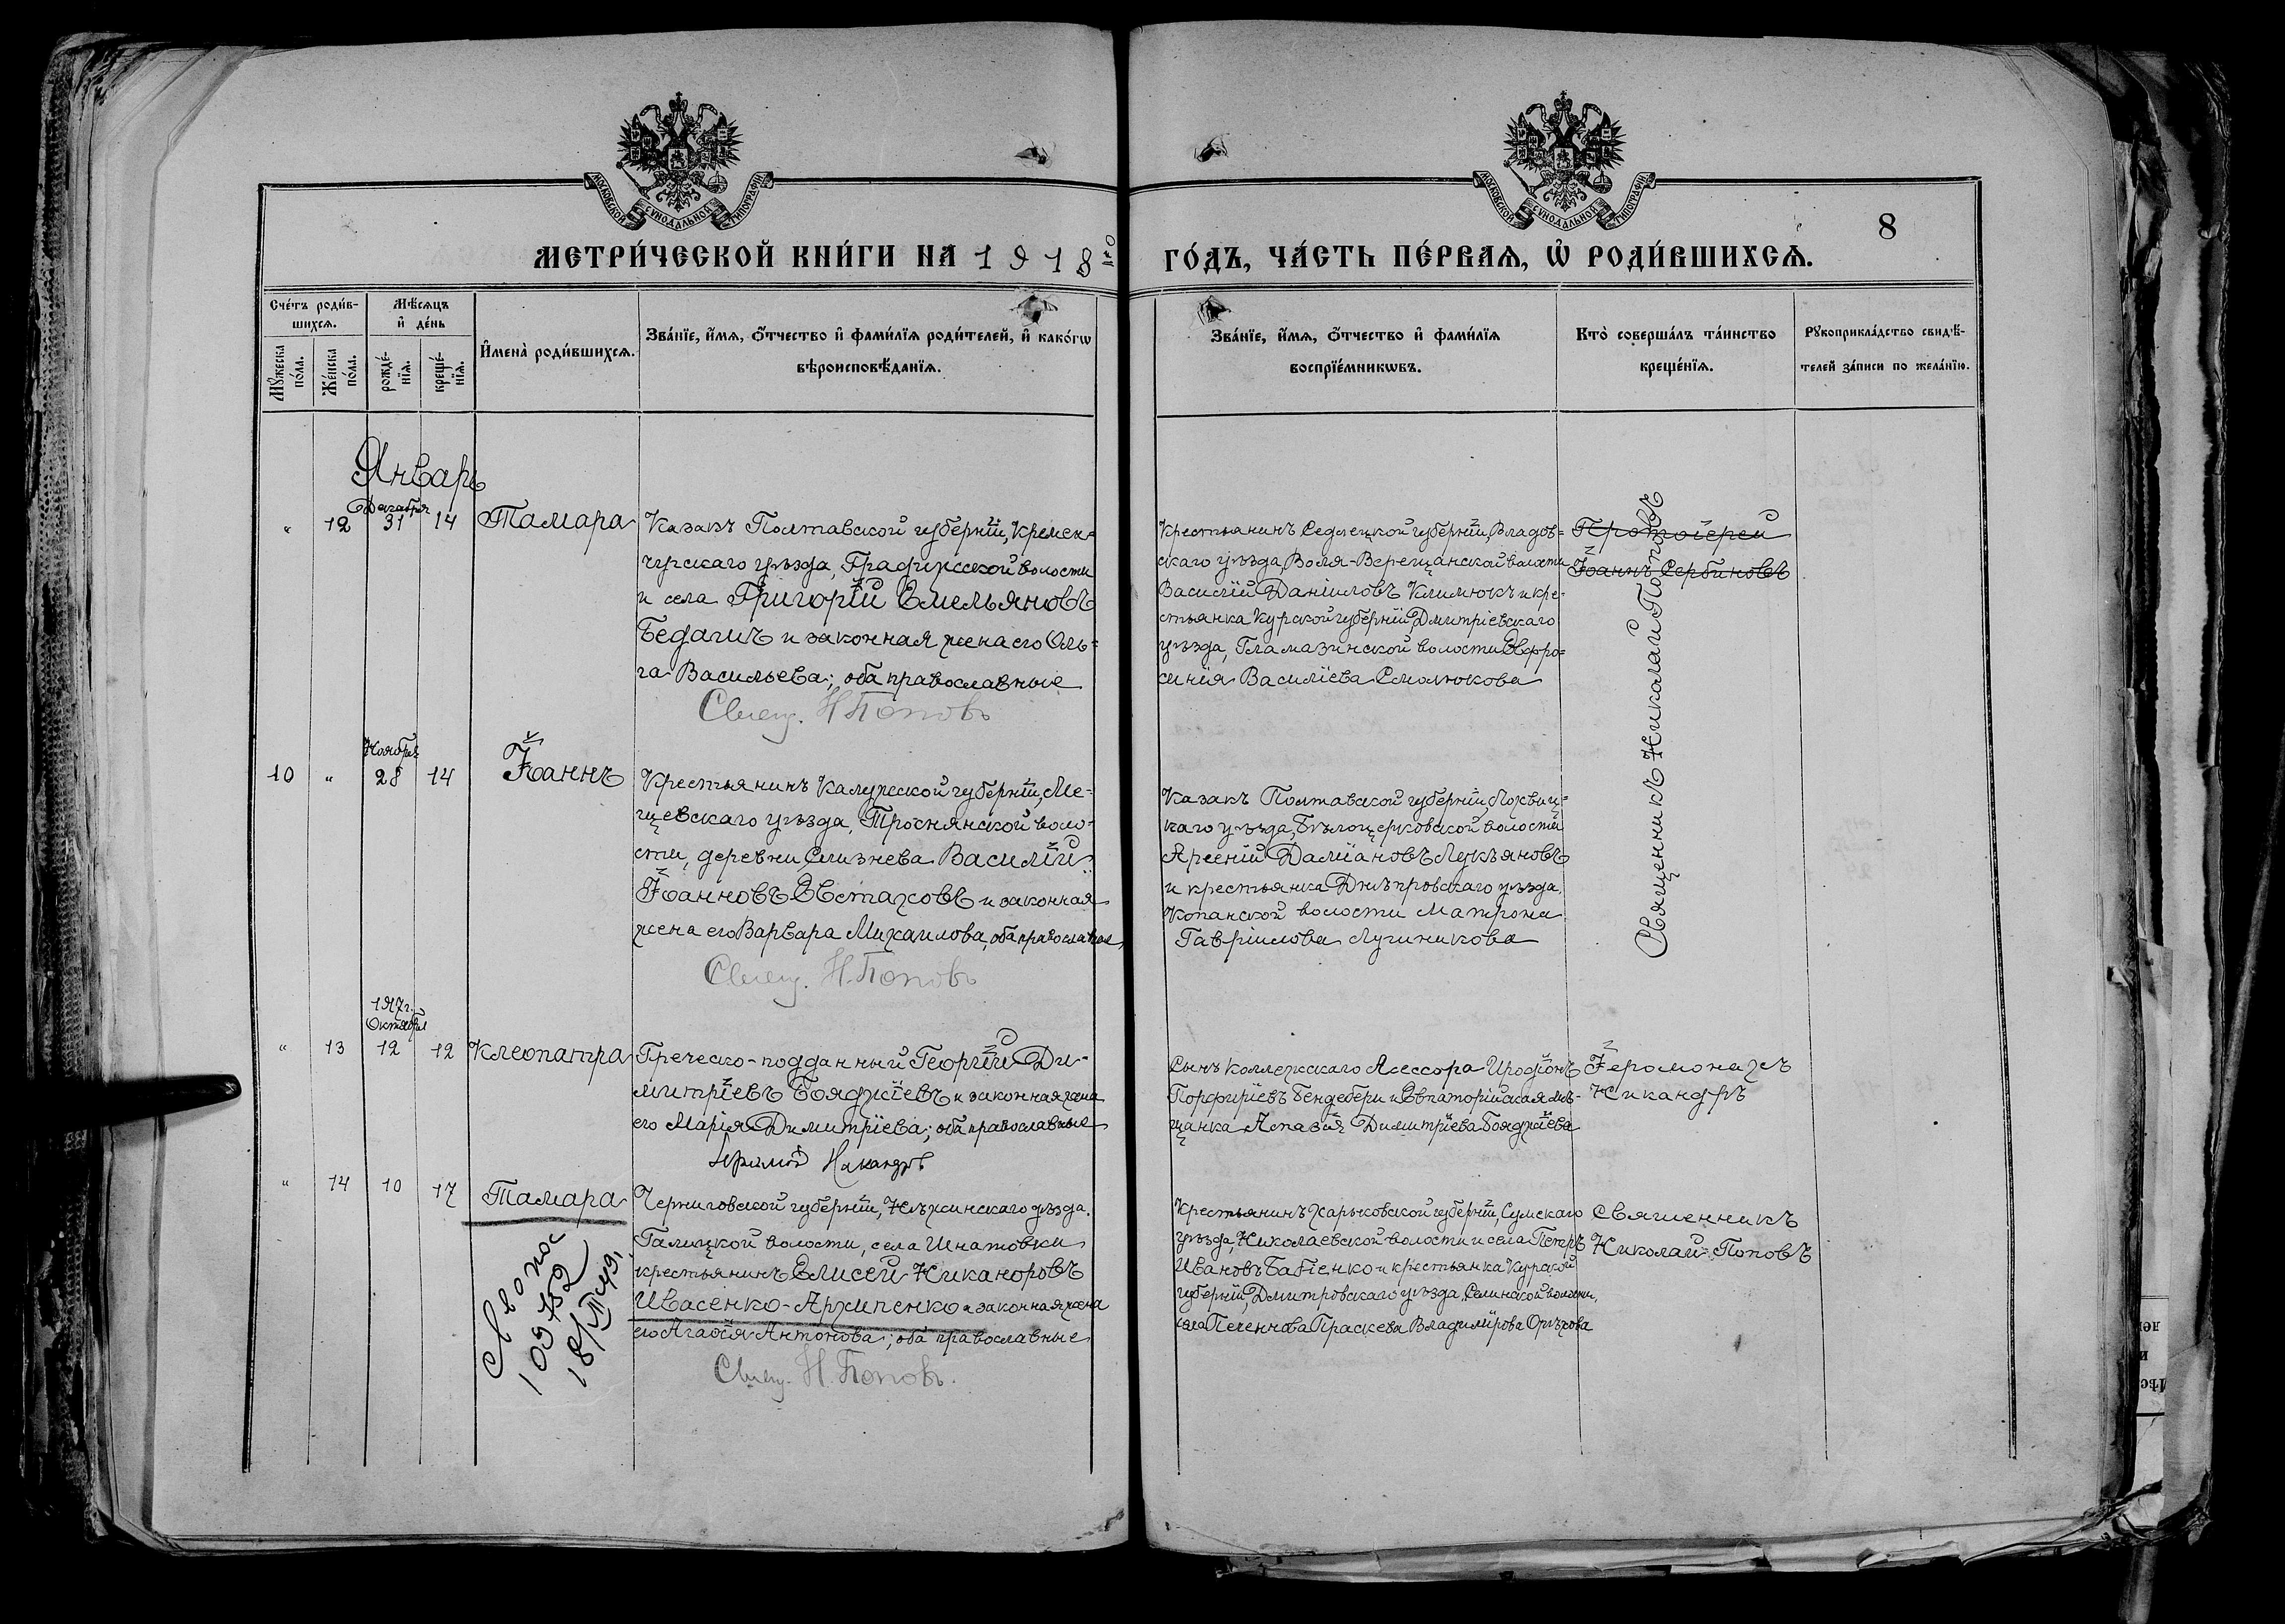 МОСКОВСКОЙ СѴНОДАЛЬНОЙ ТИПОГРАФІИ
МОСКОВСКОЙ СѴНОДАЛЬНОЙ ТИПОГРАФІИ
8
МЕТРИ́ЧЕСКОЙ КНИ́ГИ НА 1918го
ГО́ДЪ, ЧА́СТЬ ПЕ́РВАѦ, Ѡ҆ РОДИ́ВШИХСѦ.
Сче́тъ роди́в-
шихсѧ.
Мѣ́сѧцъ
и҆ де́нь
И҆мена̀ роди́вшихсѧ.
Зва́нїе, и҆́мѧ, ѻ҆́тчество и҆ фами́лїѧ роди́телей, и҆ како́гѡ
вѣроисповѣ́данїѧ.
Мꙋ́жеска
по́ла.
Же́нска
по́ла.
рожде́-
нїѧ.
креще́-
нїѧ.
Зва́нїе, и҆́мѧ, ѻ҆́тчество и҆ фами́лїѧ
воспрїе́мникѡвъ.
Кто̀ соверша́лъ та́инство
креще́нїѧ.
Рꙋкоприкла́дство свидѣ́-
телей за́писи по жела́нїю.
Январь
Декабря
" 12 31 14 Тамара
Казакъ Полтавской губерніи, Кремен-
чугскаго уѣзда, Градижской волости
и села Григорій Емельяновъ
Бедагинъ и законная жена его Оль-
га Васильева; оба православные
Свящ. Н. Поповъ
Крестьянинъ Седлецкой губерніи, Владов-
скаго уѣзда, Воля-Верещанской волости
Василій Даніиловъ Климюкъ и кре-
стьянка Курской губерніи, Дмитріевскаго
уѣзда, Гламазинской волости Евфро-
синія Василіева Смолюкова
Протоіерей
Іоаннъ Сербиновъ
Священникъ Николай Поповъ
Ноября
10 " 28 14 Іоаннъ
Крестьянинъ Калужской губерніи, Ме-
щевскаго уѣзда, Троснянской воло-
сти, деревни Слизнева Василій
Іоанновъ Евстаховъ и законная
жена его Варвара Михаилова, оба православные
Свящ. Н. Поповъ
Казакъ Полтавской губерніи, Лохвиц-
каго уѣзда, Бѣлоцерковской волости
Арсеній Даміановъ Лукьяновъ
и крестьянка Днѣпровскаго уѣзда,
Копанской волости Матрона
Гавріилова Лучникова
1917 г.
Октября
" 13 12 12 Клеопатра
Греческо-подданный Георгій Ди-
митріевъ Бояджіевъ и законная жена
его Марія Димитріева; оба православные
Іеромон. Никандръ
Сынъ Коллежскаго Асессора Иродіонъ
Порфиріевъ Бендебери и Евпаторійская мѣ-
щанка Аспазія Димитріева Бояджіева
Іеромонахъ
Никандръ
" 14 10 17 Тамара
Черниговской губерніи, Нѣжинскаго уѣзда,
Галицкой волости, села Игнатовки
крестьянинъ Елисей Никаноровъ
Ивасенко-Архипенко и законная жена
его Агафія Антонова; оба православные
Свящ. Н. Поповъ.
Крестьянинъ Харьковской губерніи, Сумскаго
уѣзда, Николаевской волости и села Петръ
Ивановъ Бабенко и крестьянка Курской
губерніи, Дмитровскаго уѣзда, Селинской волости,
села Праскева Владимірова Орѣхова
Священникъ
Николай Поповъ